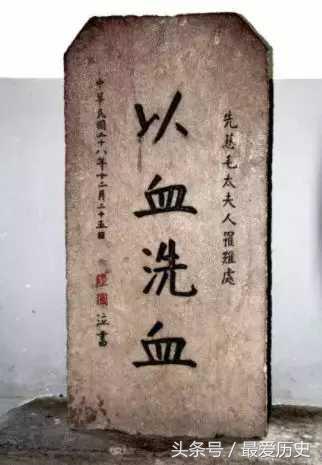 先慈毛太夫人罹難處
以血洗血
中華民國二十八年十二月二十五日
經國泣書
头条号/最爱历史